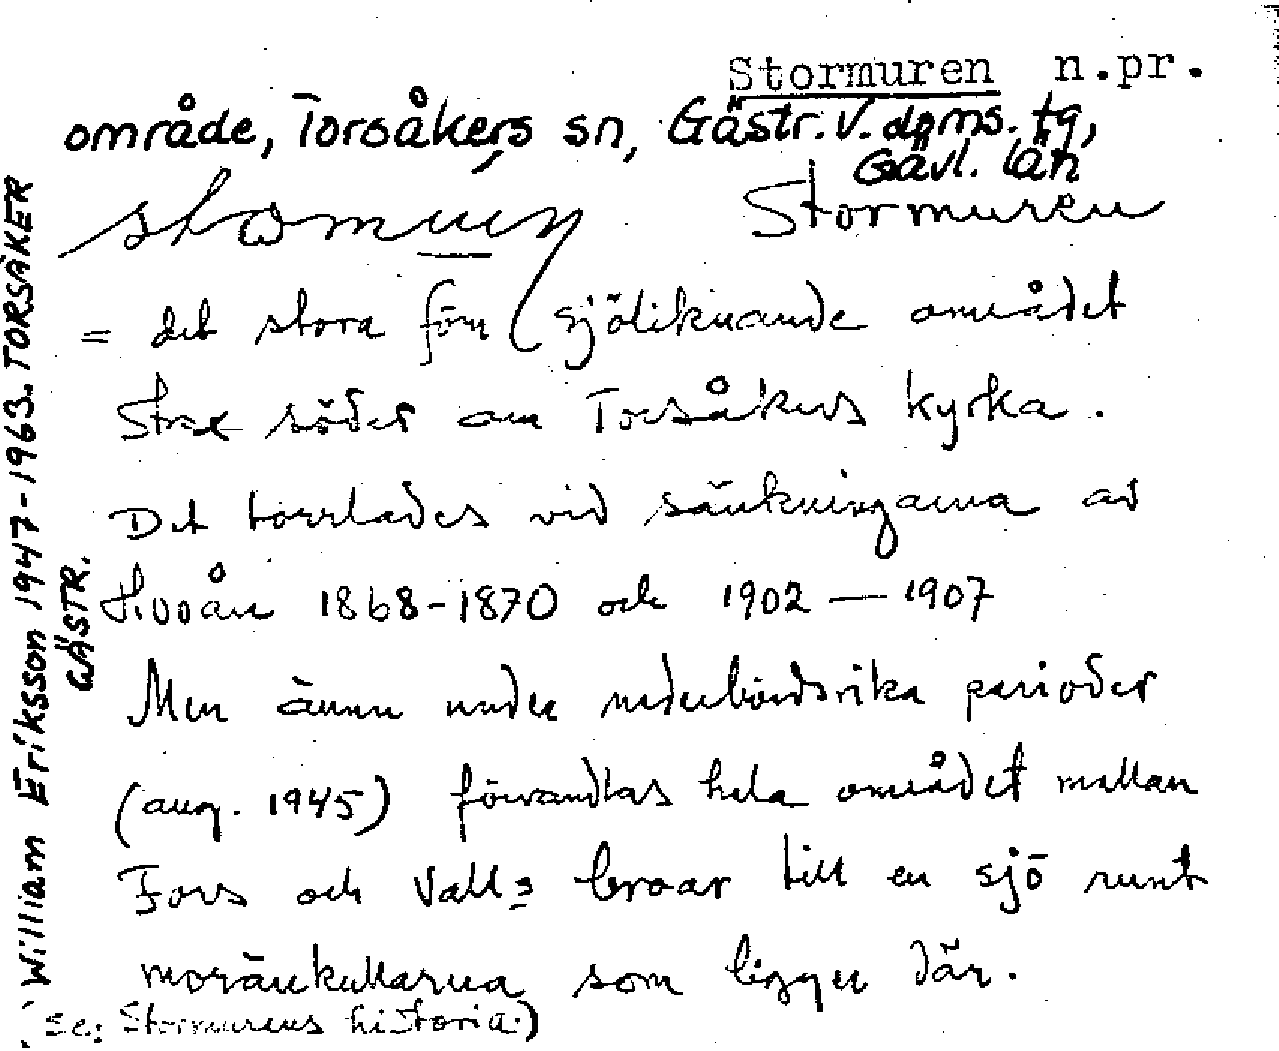 Stormuren n.pr.
område, Torsåkers sn, Gästr. V. doms. tg,
Gävl. län
Stormuren
= det stora förr sjöliknande området
Strax söder om Torsåkers kyrka.
Det torrlades vid sänkningarna av
Hoån 1868-1870 och 1902 — 1907
Men ännu under nederbördsrika perioder
(aug. 1945) förvandlas hela området mellan
Fors och Valls broar till en sjö runt
moränkullarna som ligger där.
(se: Stormurens historia.)
William Eriksson 1947-1963. TORSÅKER
GÄSTR.